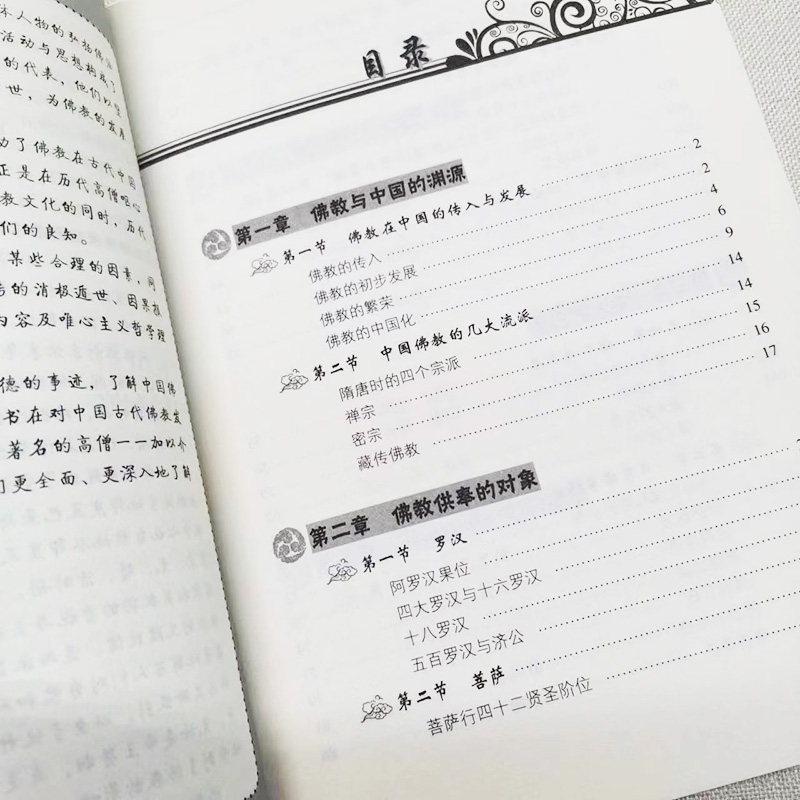 人物的弘扬佛
活动与思想构成了
的代表，他们以坚
世，为佛教的发展
动了佛教在古代中国
正是在历代高僧呕心
教文化的同时，历代
们的良知。
某些合理的因素，同
的消极遁世、因果报
内容及唯心主义哲学理
德的事迹，了解中国佛
书在对中国古代佛教发
著名的高僧一一加以介
们更全面、更深入地了解
目录
第一章 佛教与中国的渊源
第一节 佛教在中国的传入与发展 2
佛教的传入 2
佛教的初步发展 4
佛教的繁荣 6
佛教的中国化 9
第二节 中国佛教的几大流派 14
隋唐时的四个宗派 14
禅宗 15
密宗 16
藏传佛教 17
第二章 佛教供奉的对象
第一节 罗汉
阿罗汉果位
四大罗汉与十六罗汉
十八罗汉
五百罗汉与济公
第二节 菩萨
菩萨行四十二贤圣阶位